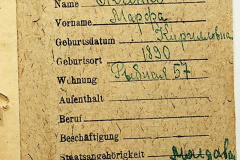 Name
Vorname Марфа
Geburtsdatum Кирилловна
Geburtsort 1890
Wohnung Рыбная 57
Aufenthalt
Beruf
Beschäftigung
Staatsangehörigkeit